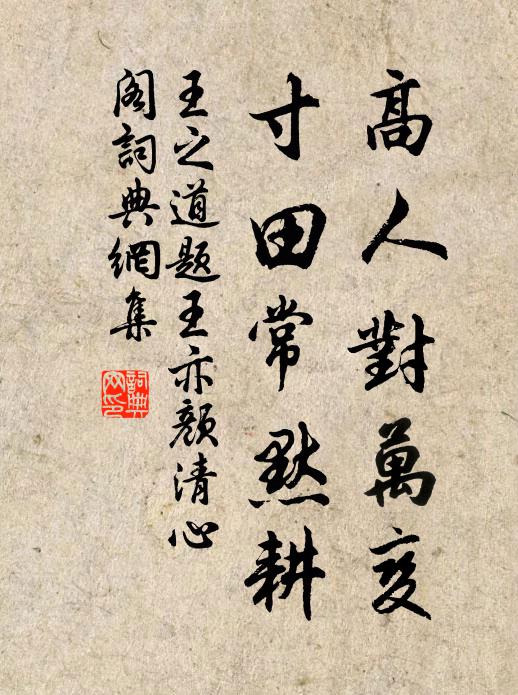 高人對萬变
寸田常默耕
王之道題王亦顏清心
閣詞典網集
詞典網印